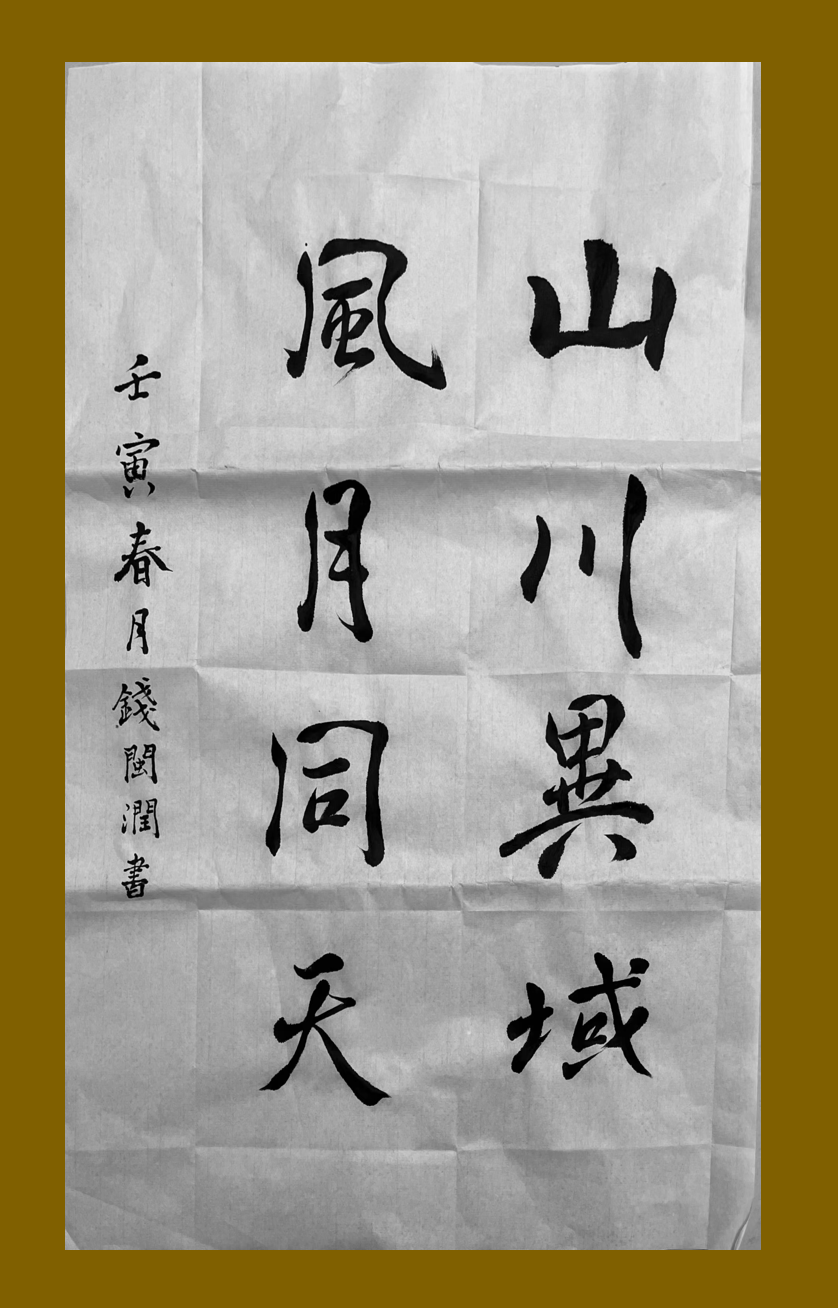 山川異域
風月同天
壬寅春月錢閩潤書